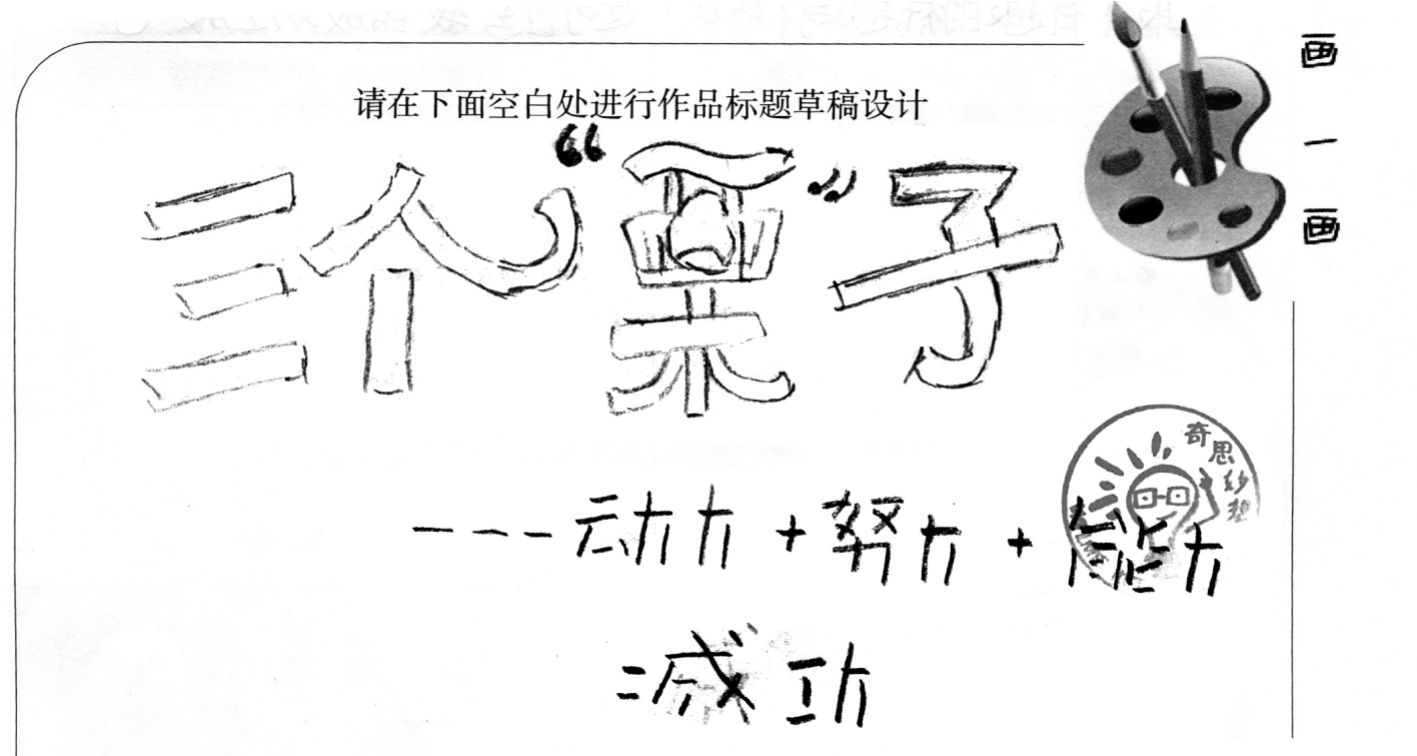 请在下面空白处进行作品标题草稿设计
三个“栗”子
---动力+努力+能力
=成功
画一画
奇思妙想